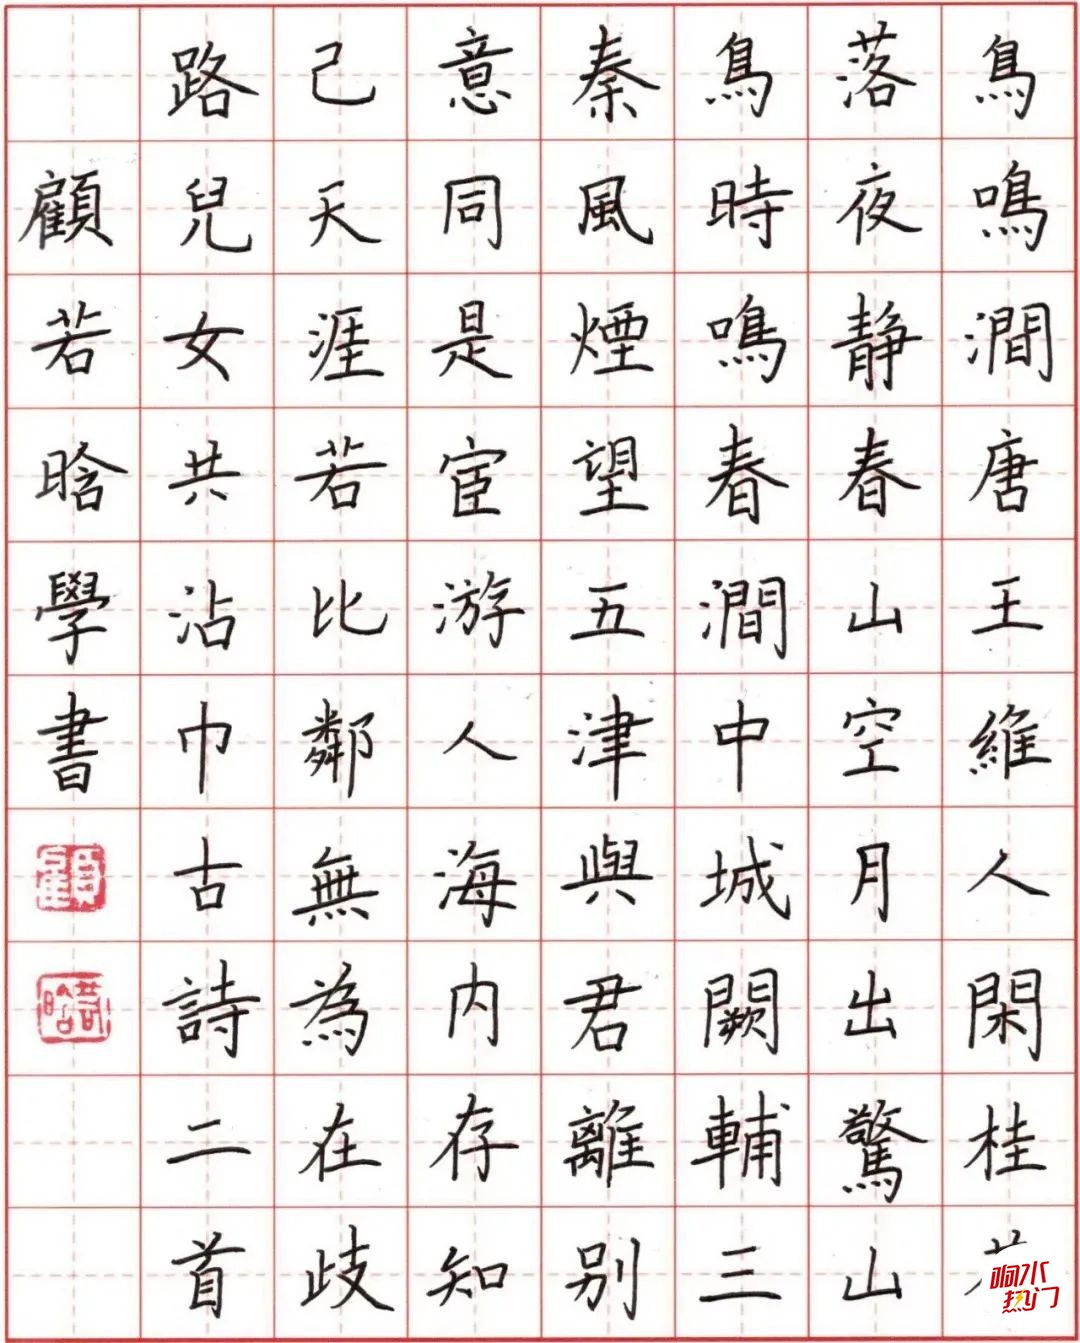 鳥鳴澗唐王維人閑桂
落夜静春山空月出驚山
鳥時鳴春澗中城闕輔三
秦風煙望五津與君離别
意同是宦游人海内存知
己天涯若比鄰無為在歧
路兒女共沾巾古詩二首
顧若晗學書
顧
若晗
响水
热门